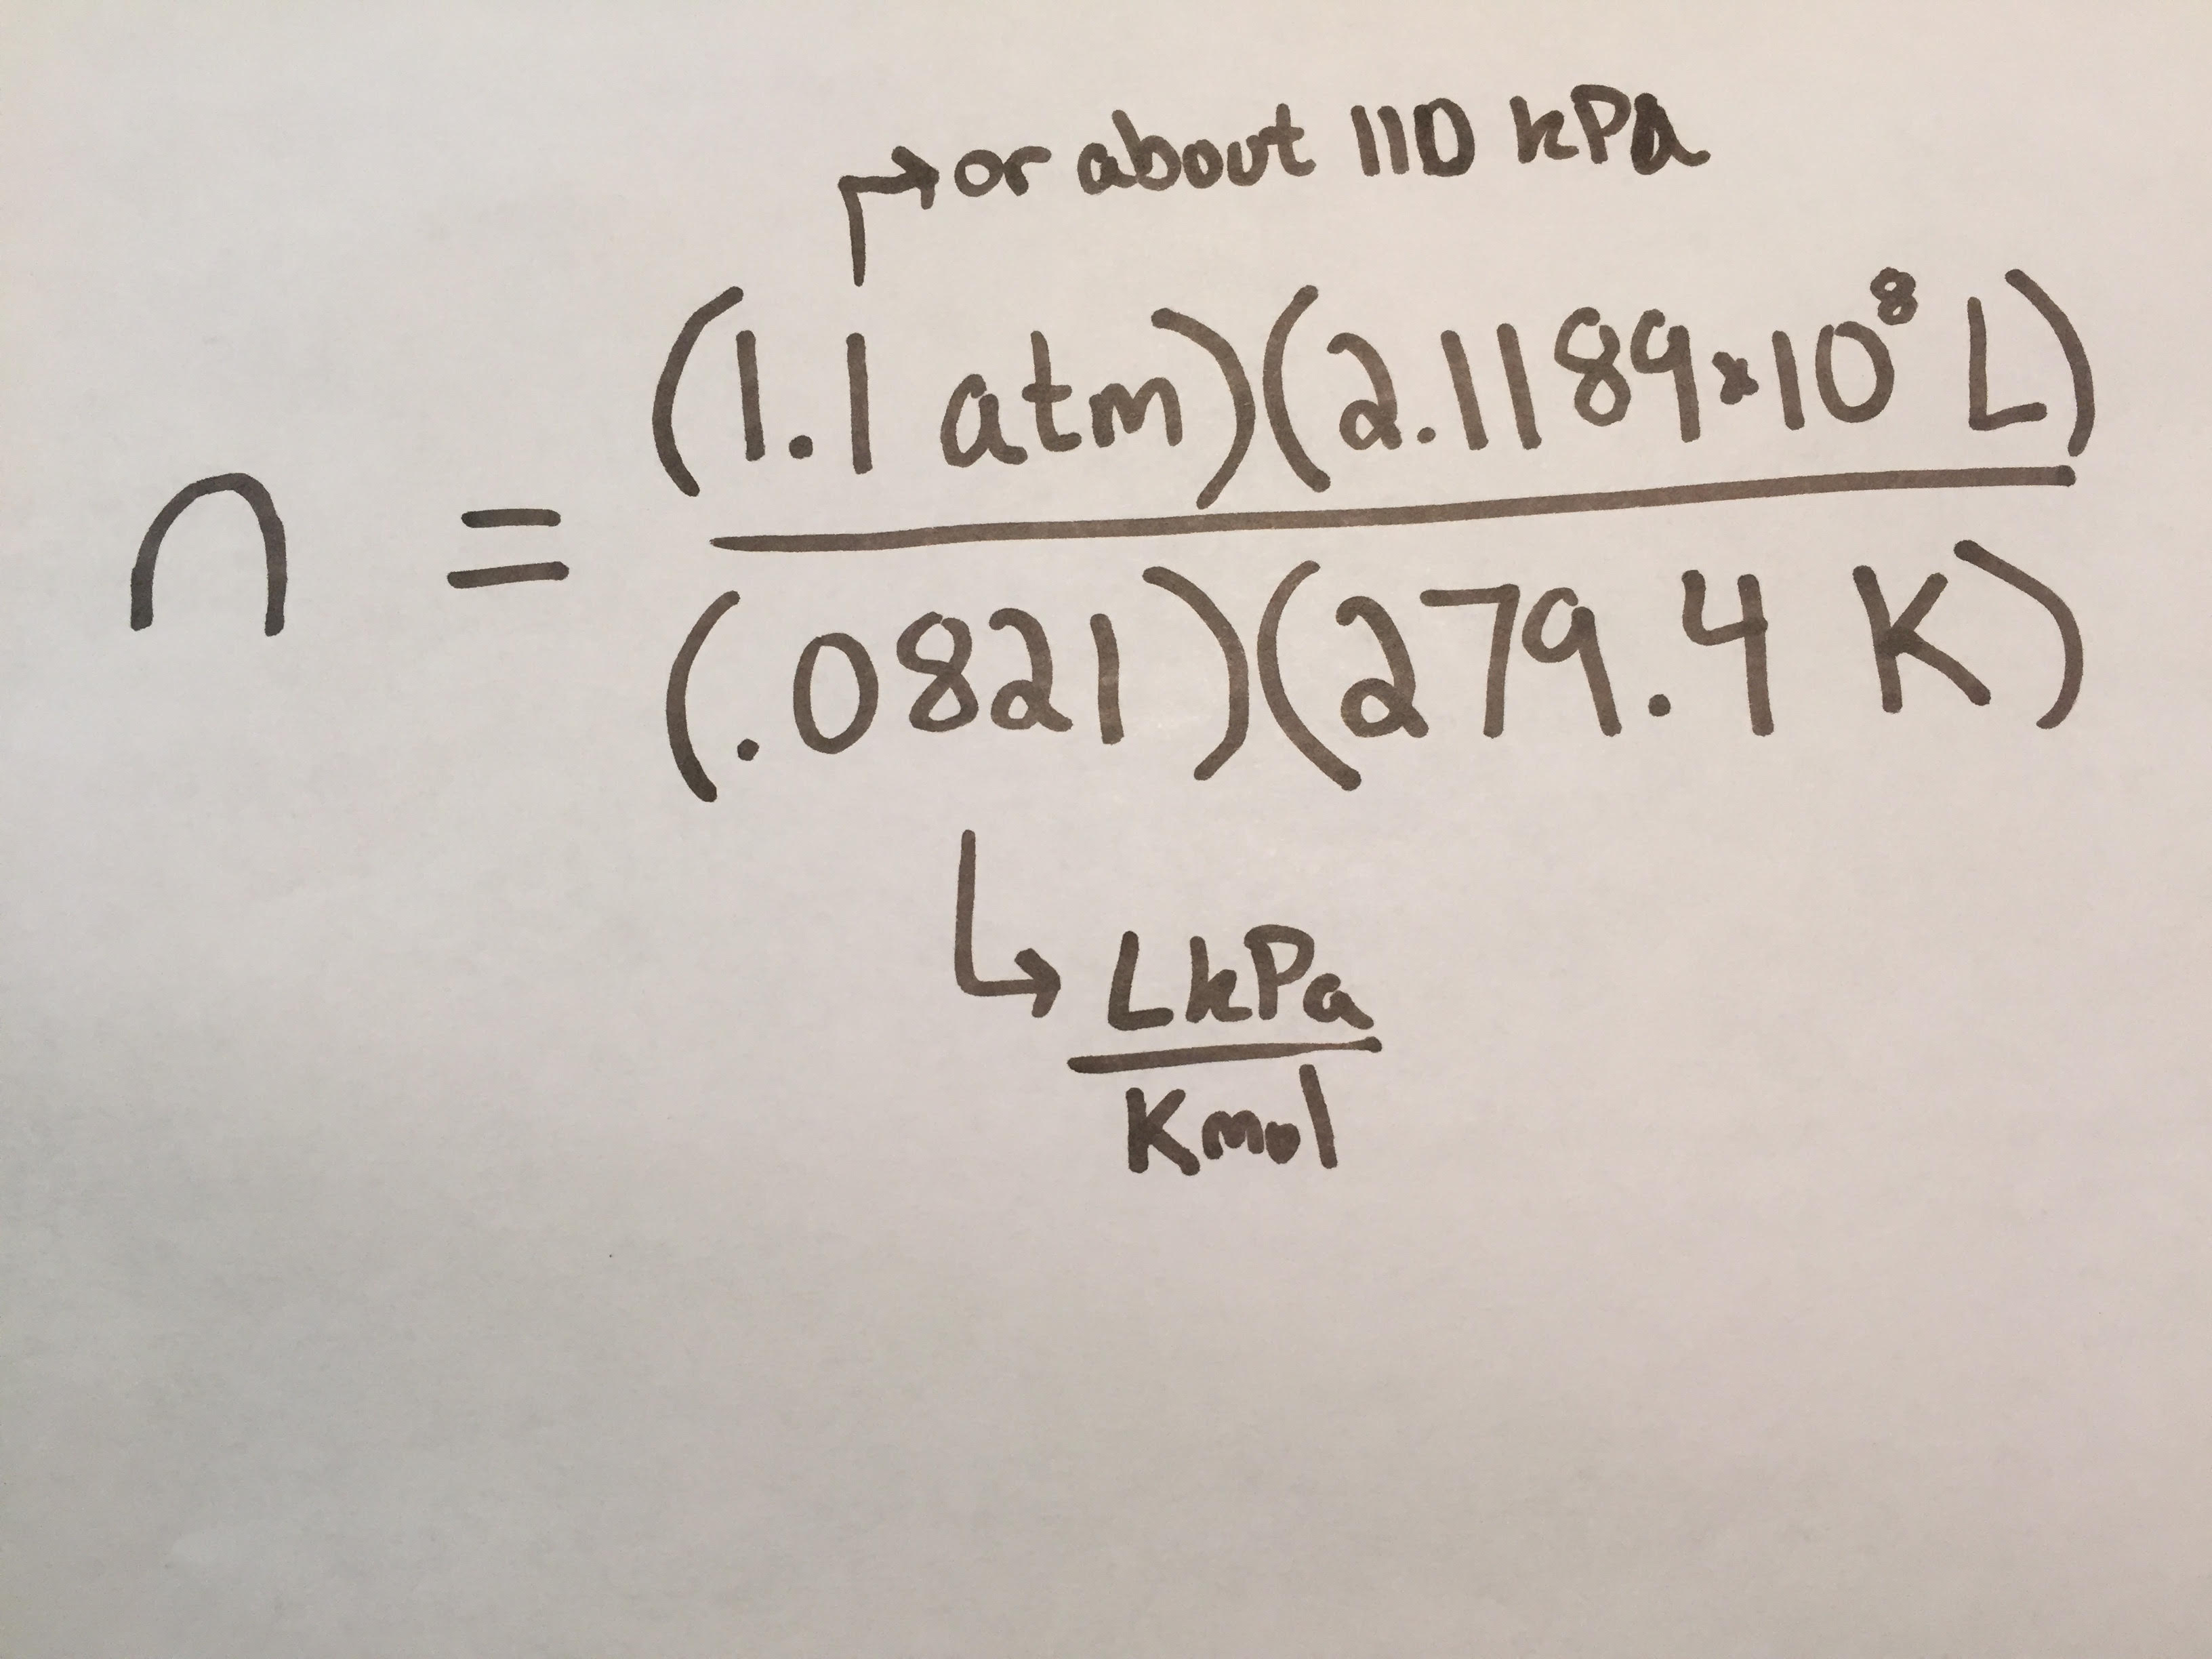 or about 110 kPa
(1.1 atm)(2.1189×10⁸ L)
n =
(.0821)(279.4 K)
LkPa
Kmol